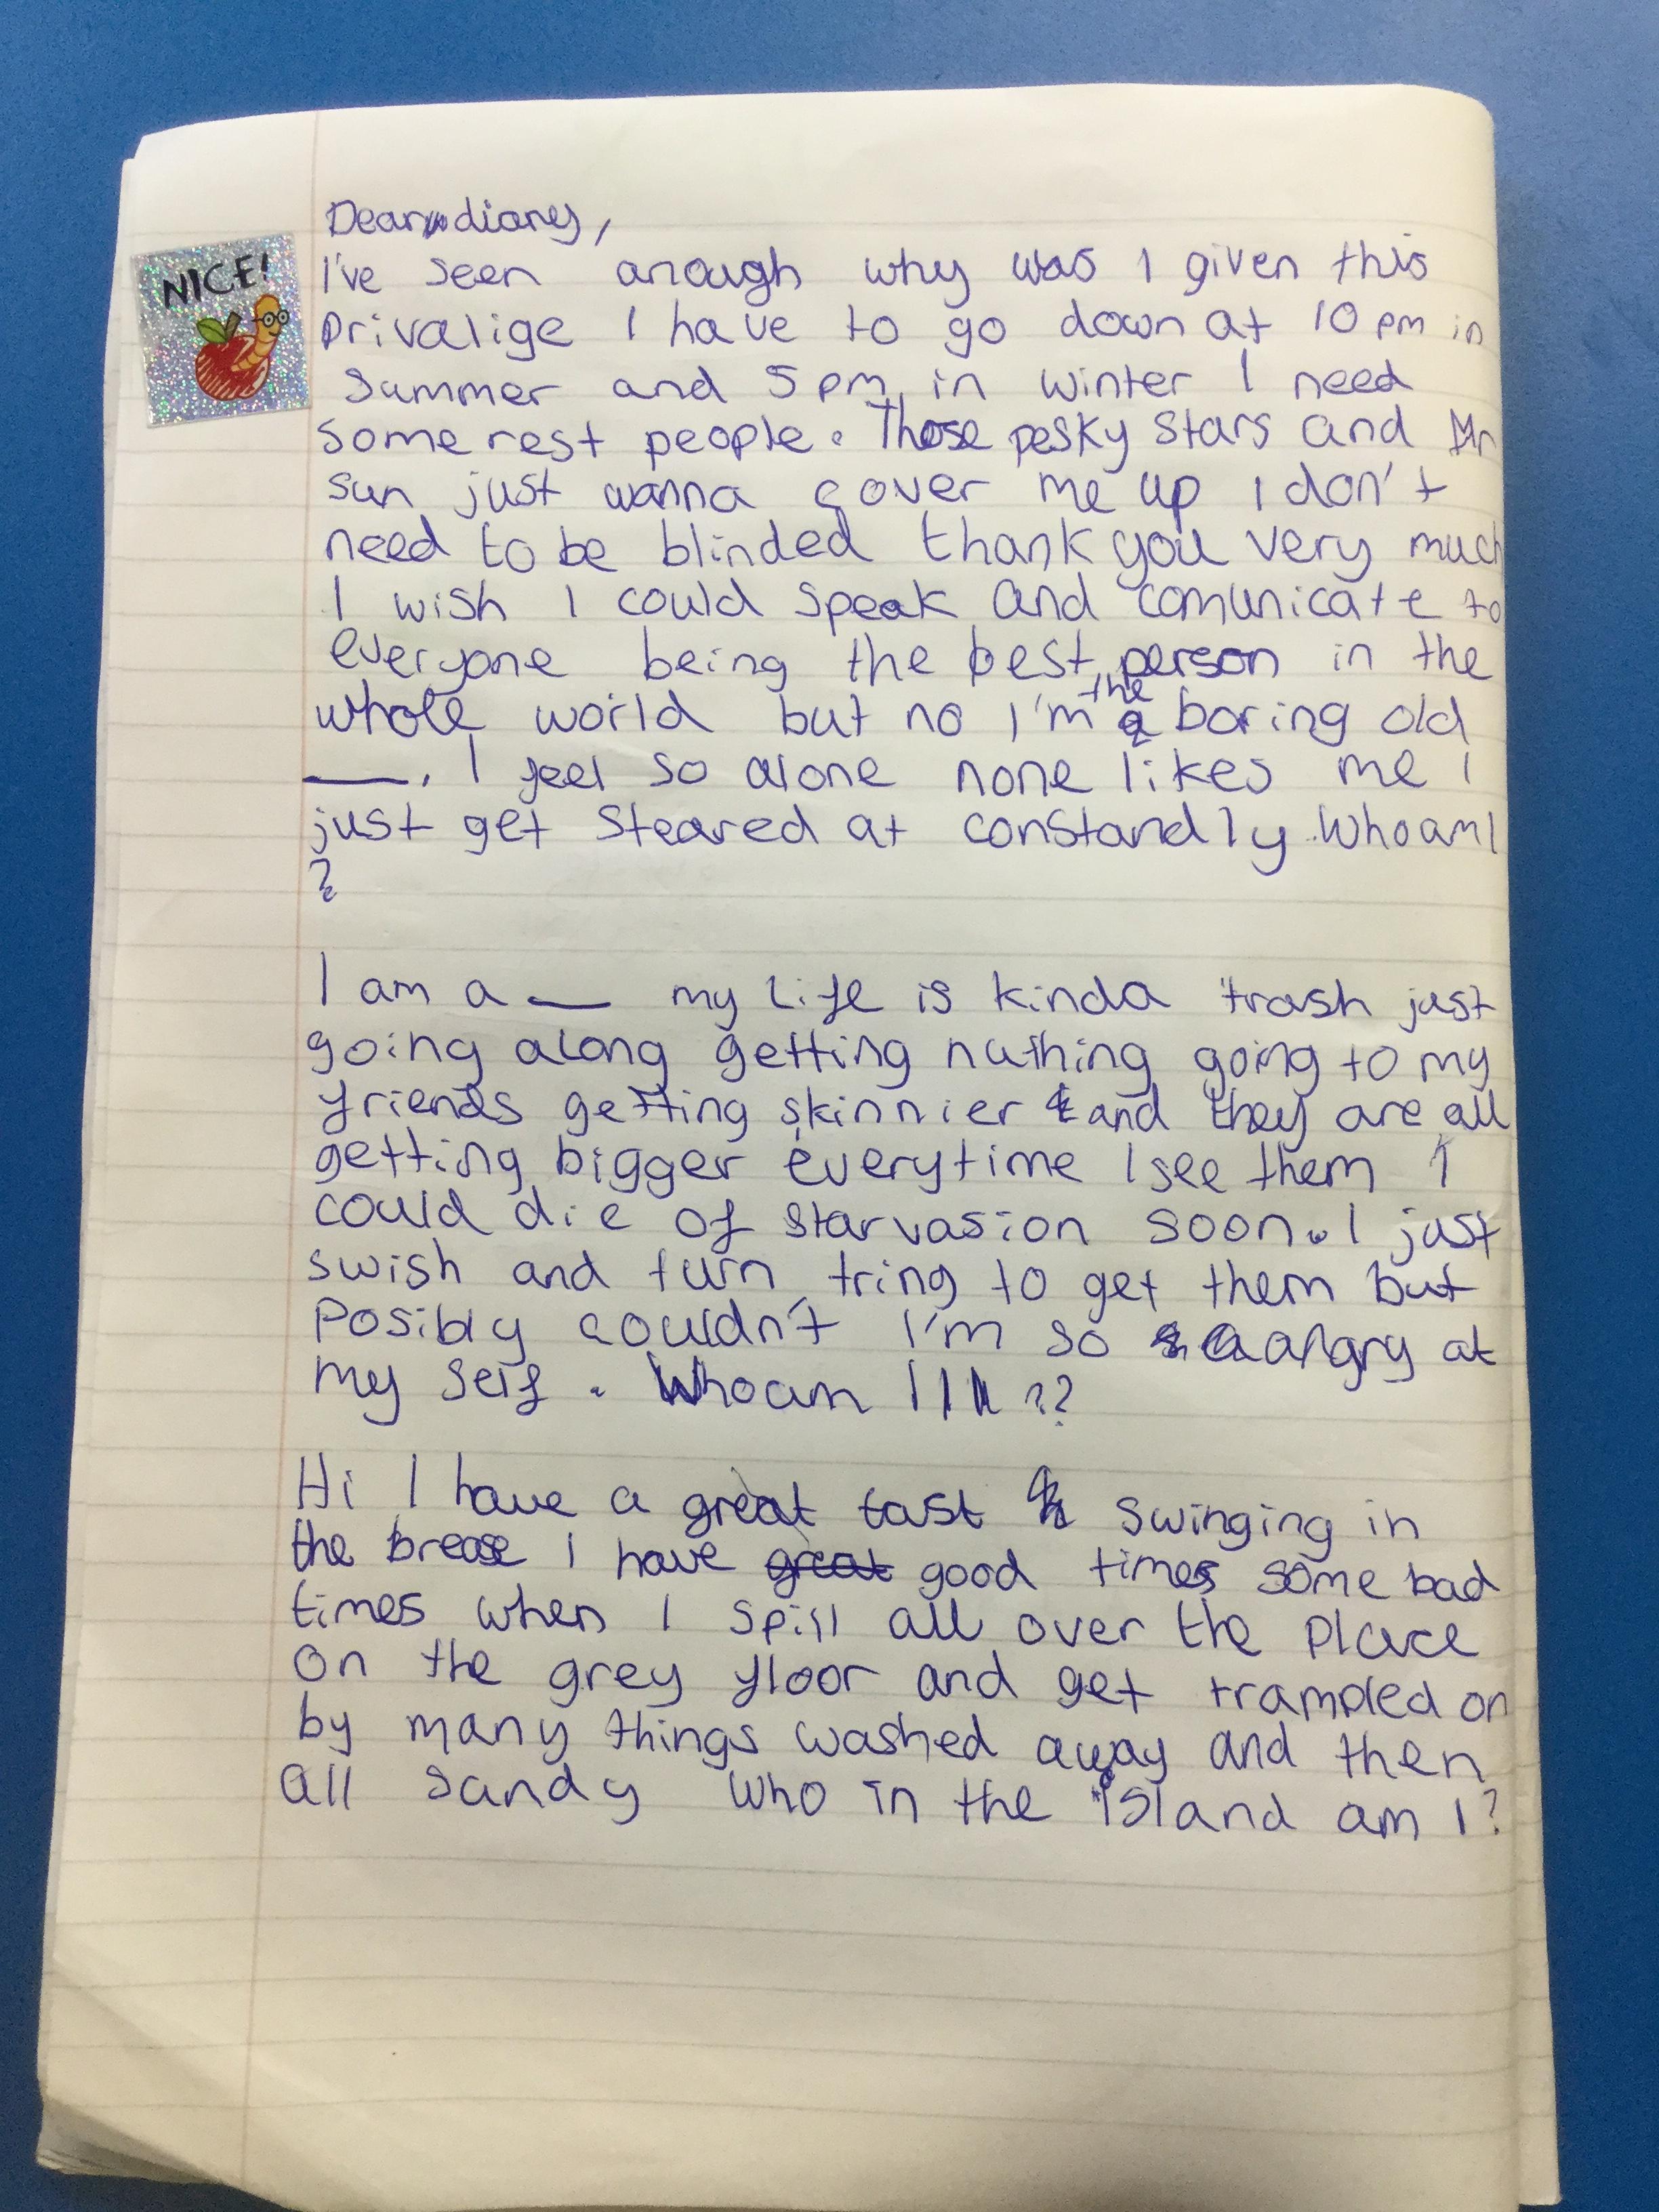 NICE!
Dear diary,
I've seen anough why was I given this
privalige I have to go down at 10 pm in
summer and 5 pm in winter I need
some rest people. Those pesky stars and Mr
sun just wanna cover me up I don't
need to be blinded thank you very much
I wish I could speak and comunicate to
everyone being the best person in the
whole world but no I'm the boring old
___. I feel so alone none likes me I
just get steared at constandly Who am I
?
I am a __ my life is kinda trash just
going along getting nuthing going to my
friends getting skinnier and they are all
getting bigger everytime I see them I
could die of starvasion soon. I just
swish and turn tring to get them but
posibly couldn't I'm so angry at
my self. Who am I ??
Hi I have a great tast swinging in
the brease I have great good times some bad
times when I spill all over the place
on the grey floor and get trampled on
by many things washed away and then
all sandy who in the island am I?